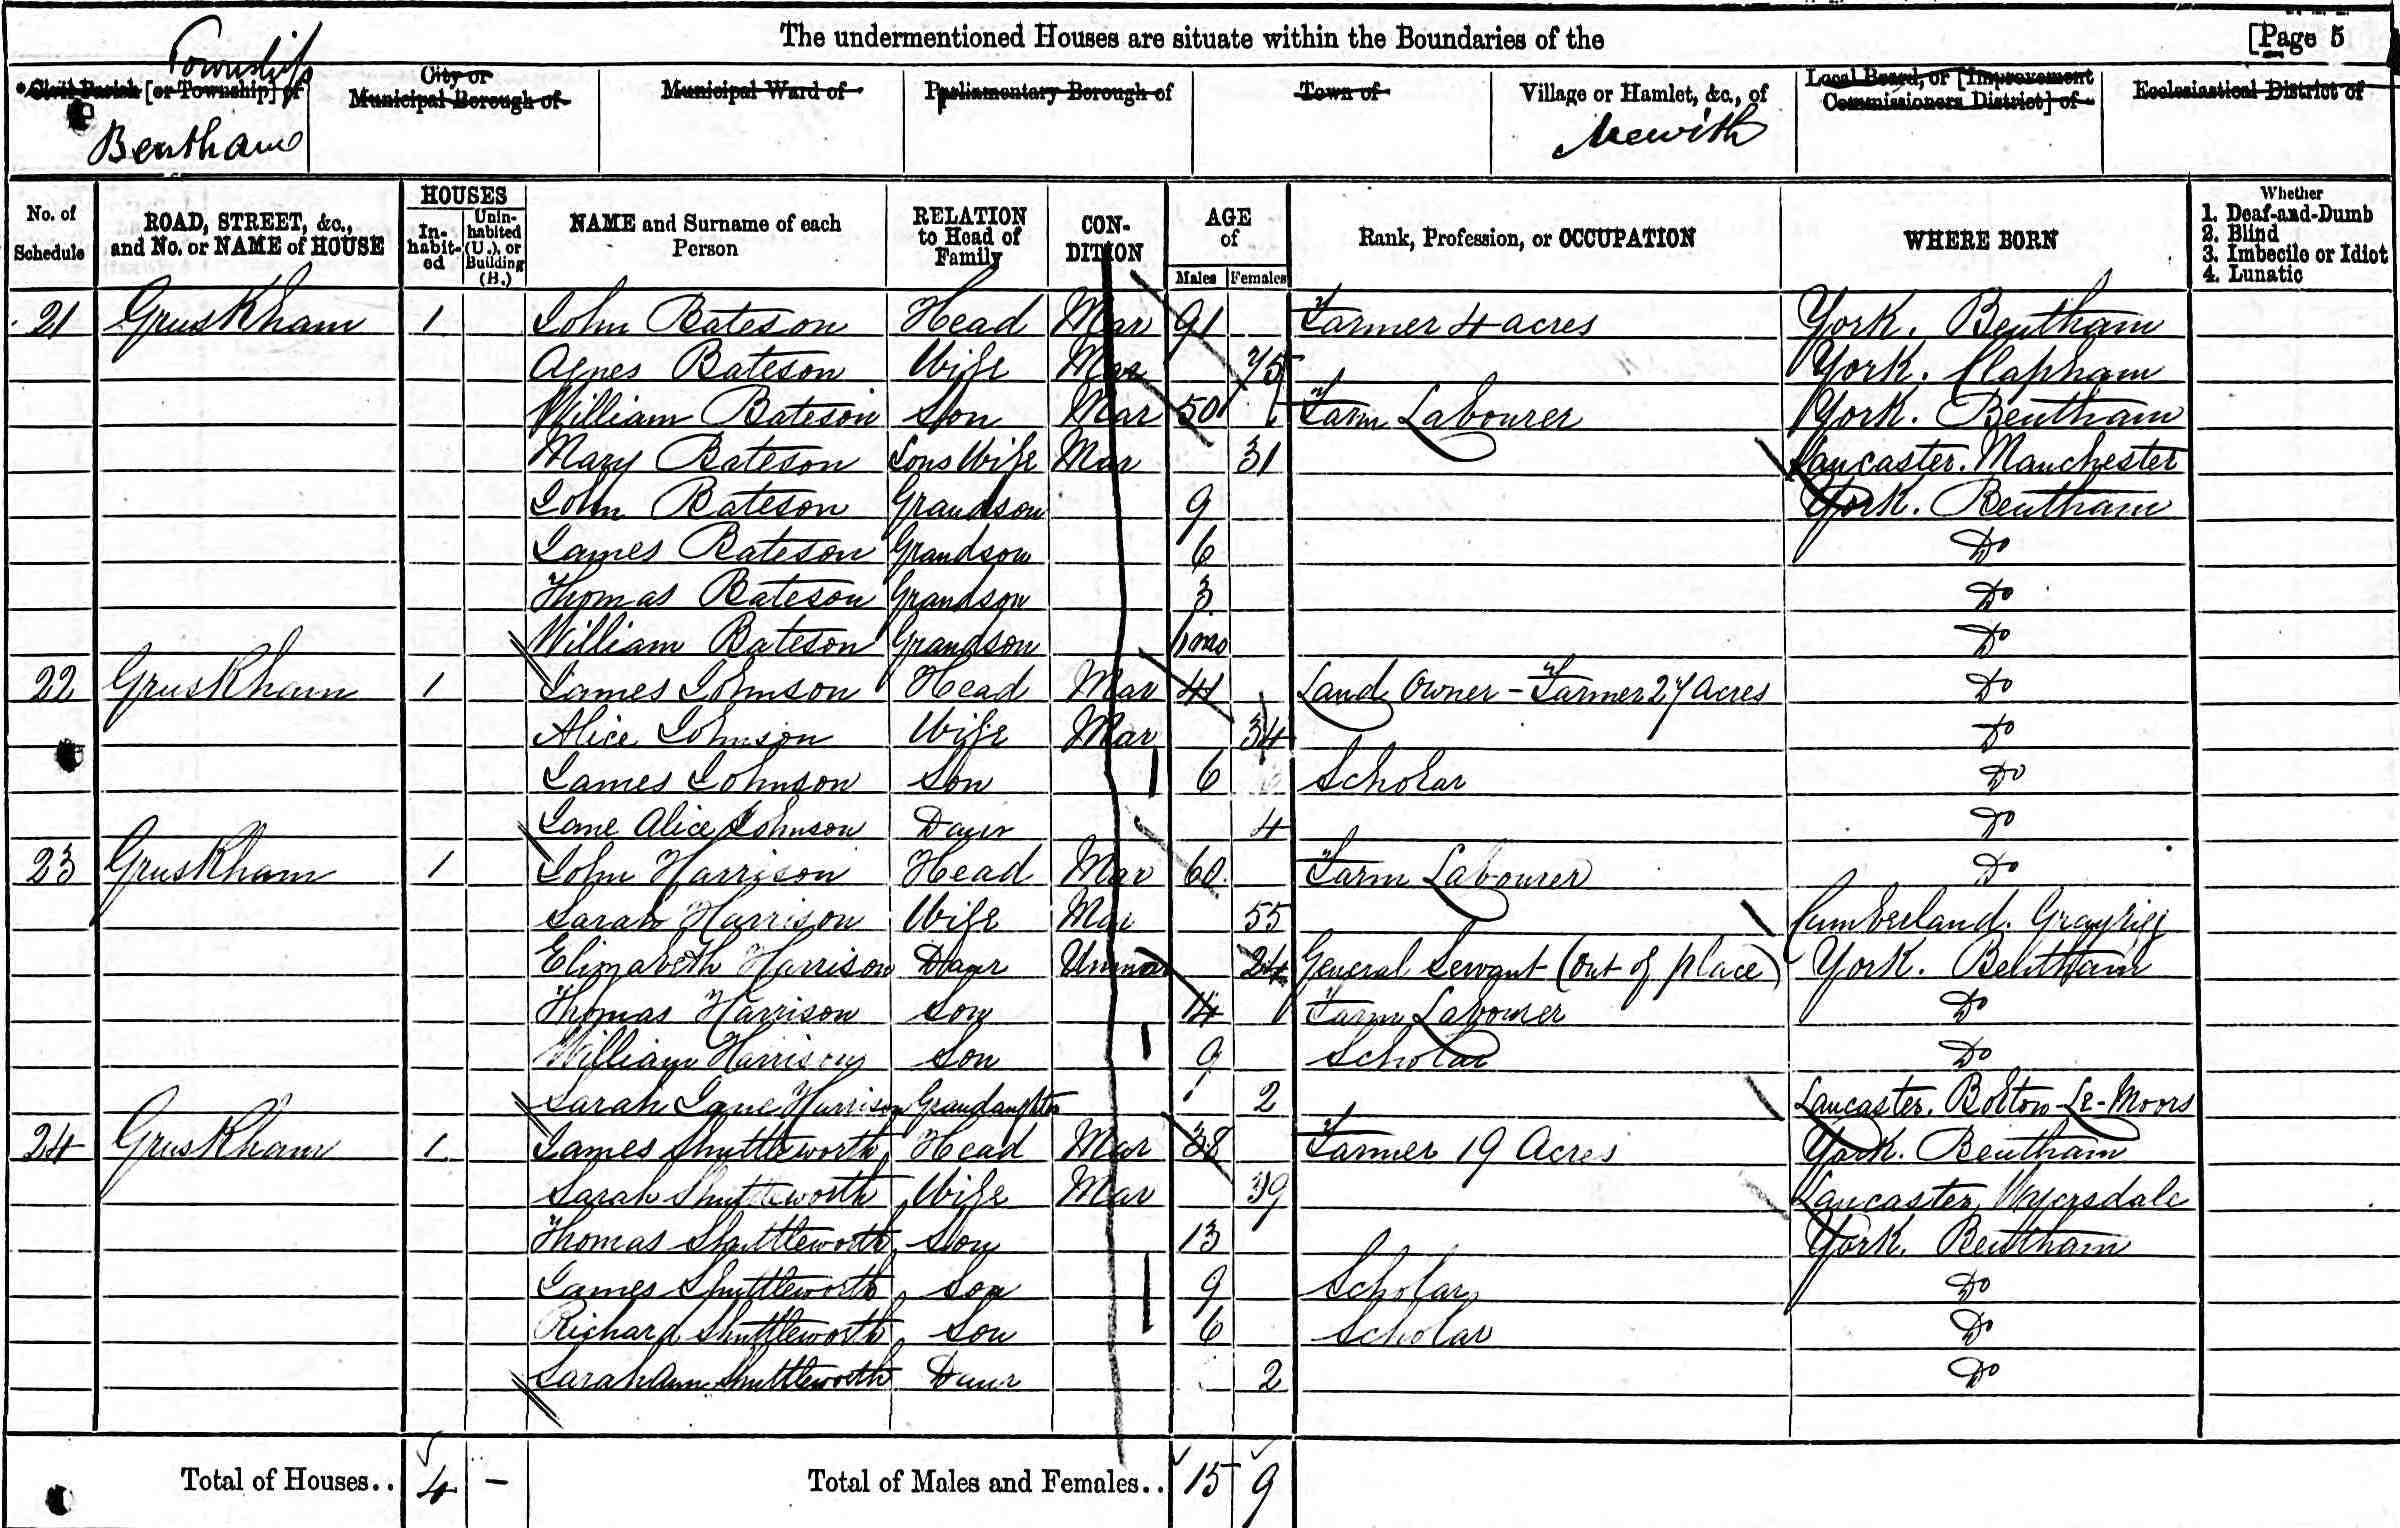 The undermentioned Houses are situate within the Boundaries of the [Page 5
Township
Civil Parish [or Township] of
City or Municipal Borough of
Municipal Ward of
Parliamentary Borough of
Town of
Village or Hamlet, &c., of
Local Board, or [Improvement Commissioners District] of
Ecclesiastical District of
Bentham
Mewith
No. of Schedule
ROAD, STREET, &c., and No. or NAME of HOUSE
HOUSES
In-habit-ed
Unin-habited (U.), or Building (B.)
NAME and Surname of each Person
RELATION to Head of Family
CON-DITION
AGE of
Males Females
Rank, Profession, or OCCUPATION
WHERE BORN
Whether
1. Deaf-and-Dumb
2. Blind
3. Imbecile or Idiot
4. Lunatic
21 Gruskham 1 John Bateson Head Mar 91 Farmer 4 acres York. Bentham
Agnes Bateson Wife Mar 75 York. Clapham
William Bateson Son Mar 50 Farm Labourer York. Bentham
Mary Bateson Sons Wife Mar 31 Lancaster. Manchester
John Bateson Grandson 9 York. Bentham
James Bateson Grandson 6 Do
Thomas Bateson Grandson 3 Do
William Bateson Grandson 1 mo Do
22 Gruskham 1 James Johnson Head Mar 41 Land Owner - Farmer 27 Acres Do
Alice Johnson Wife Mar 34 Do
James Johnson Son 6 Scholar Do
Jane Alice Johnson Daur 4 Do
23 Gruskham 1 John Harrison Head Mar 60 Farm Labourer Do
Sarah Harrison Wife Mar 55 Cumberland. Grayrigg
Elizabeth Harrison Daur Unmar 24 General Servant (out of place) York. Bentham
Thomas Harrison Son 14 Farm Labourer Do
William Harrison Son 9 Scholar Do
Sarah Jane Harrison Grandaughter 2 Lancaster. Bolton-Le-Moors
24 Gruskham 1 James Shuttleworth Head Mar 38 Farmer 19 Acres York. Bentham
Sarah Shuttleworth Wife Mar 39 Lancaster, Wyersdale
Thomas Shuttleworth Son 13 York. Bentham
James Shuttleworth Son 9 Scholar Do
Richard Shuttleworth Son 6 Scholar Do
Sarah Ann Shuttleworth Daur 2 Do
Total of Houses.. 4 - Total of Males and Females.. 15 9